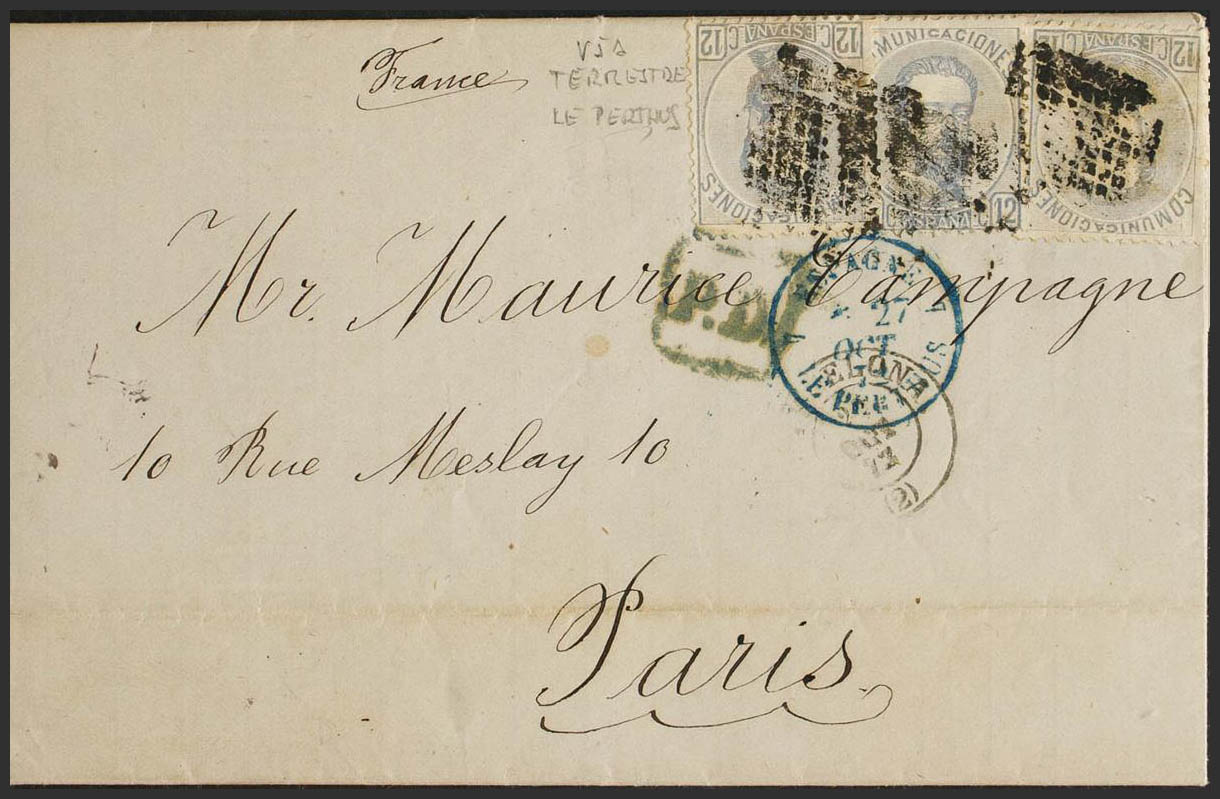 France
VIA
TERRESTRE
LE PERTHUS
12 C. ESPAÑA C. 12
COMUNICACIONES
MUNICACIONES
12
12 C. ESPAÑA C. 12
COMUNICACIONES
Mr. Maurice Campagne
P.D.
27
OCT
ELONA
(2)
10 Rue Meslay 10
Paris